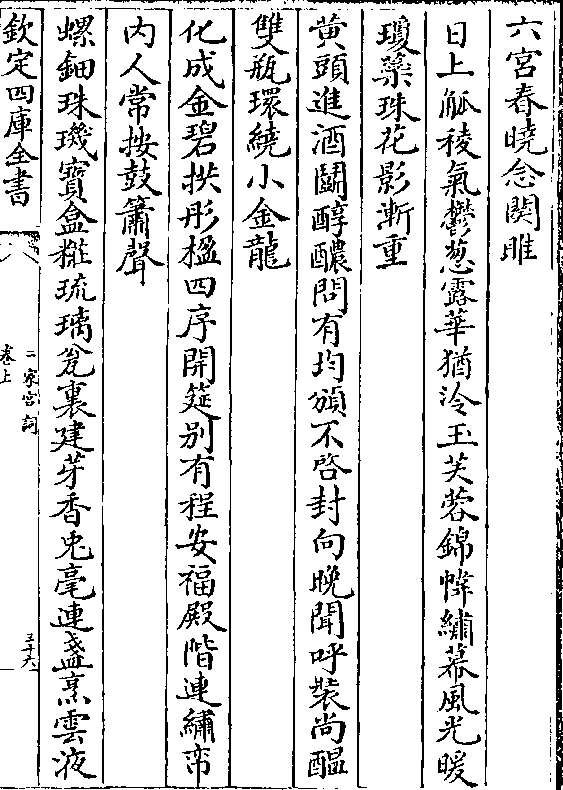 六宮春曉念關雎
日上觚稜氣鬱葱露華猶泠玉芙蓉錦幃繡幕風光暖
瓊蘂珠花影漸重
黄頭進酒鬭醇醲問有均頒不啓封向晚聞呼裝尚醖
雙瓶環繞小金龍
化成金碧拱彤楹四序開筵别有程安福殿階連繡帟
内人常按鼓簫聲
螺鈿珠璣寶盒糚琉璃瓮裏建芽香兎毫連盞烹雲液
欽定四庫全書
二家宮詞
卷上
三十六